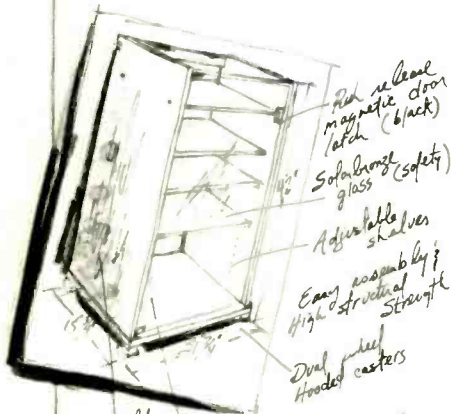 Push release
magnetic door
latch (black)
Solarbronze
glass (safety)
Adjustable
shelves
Easy assembly &
High structural
Strength
Dual wheel
Hooded casters